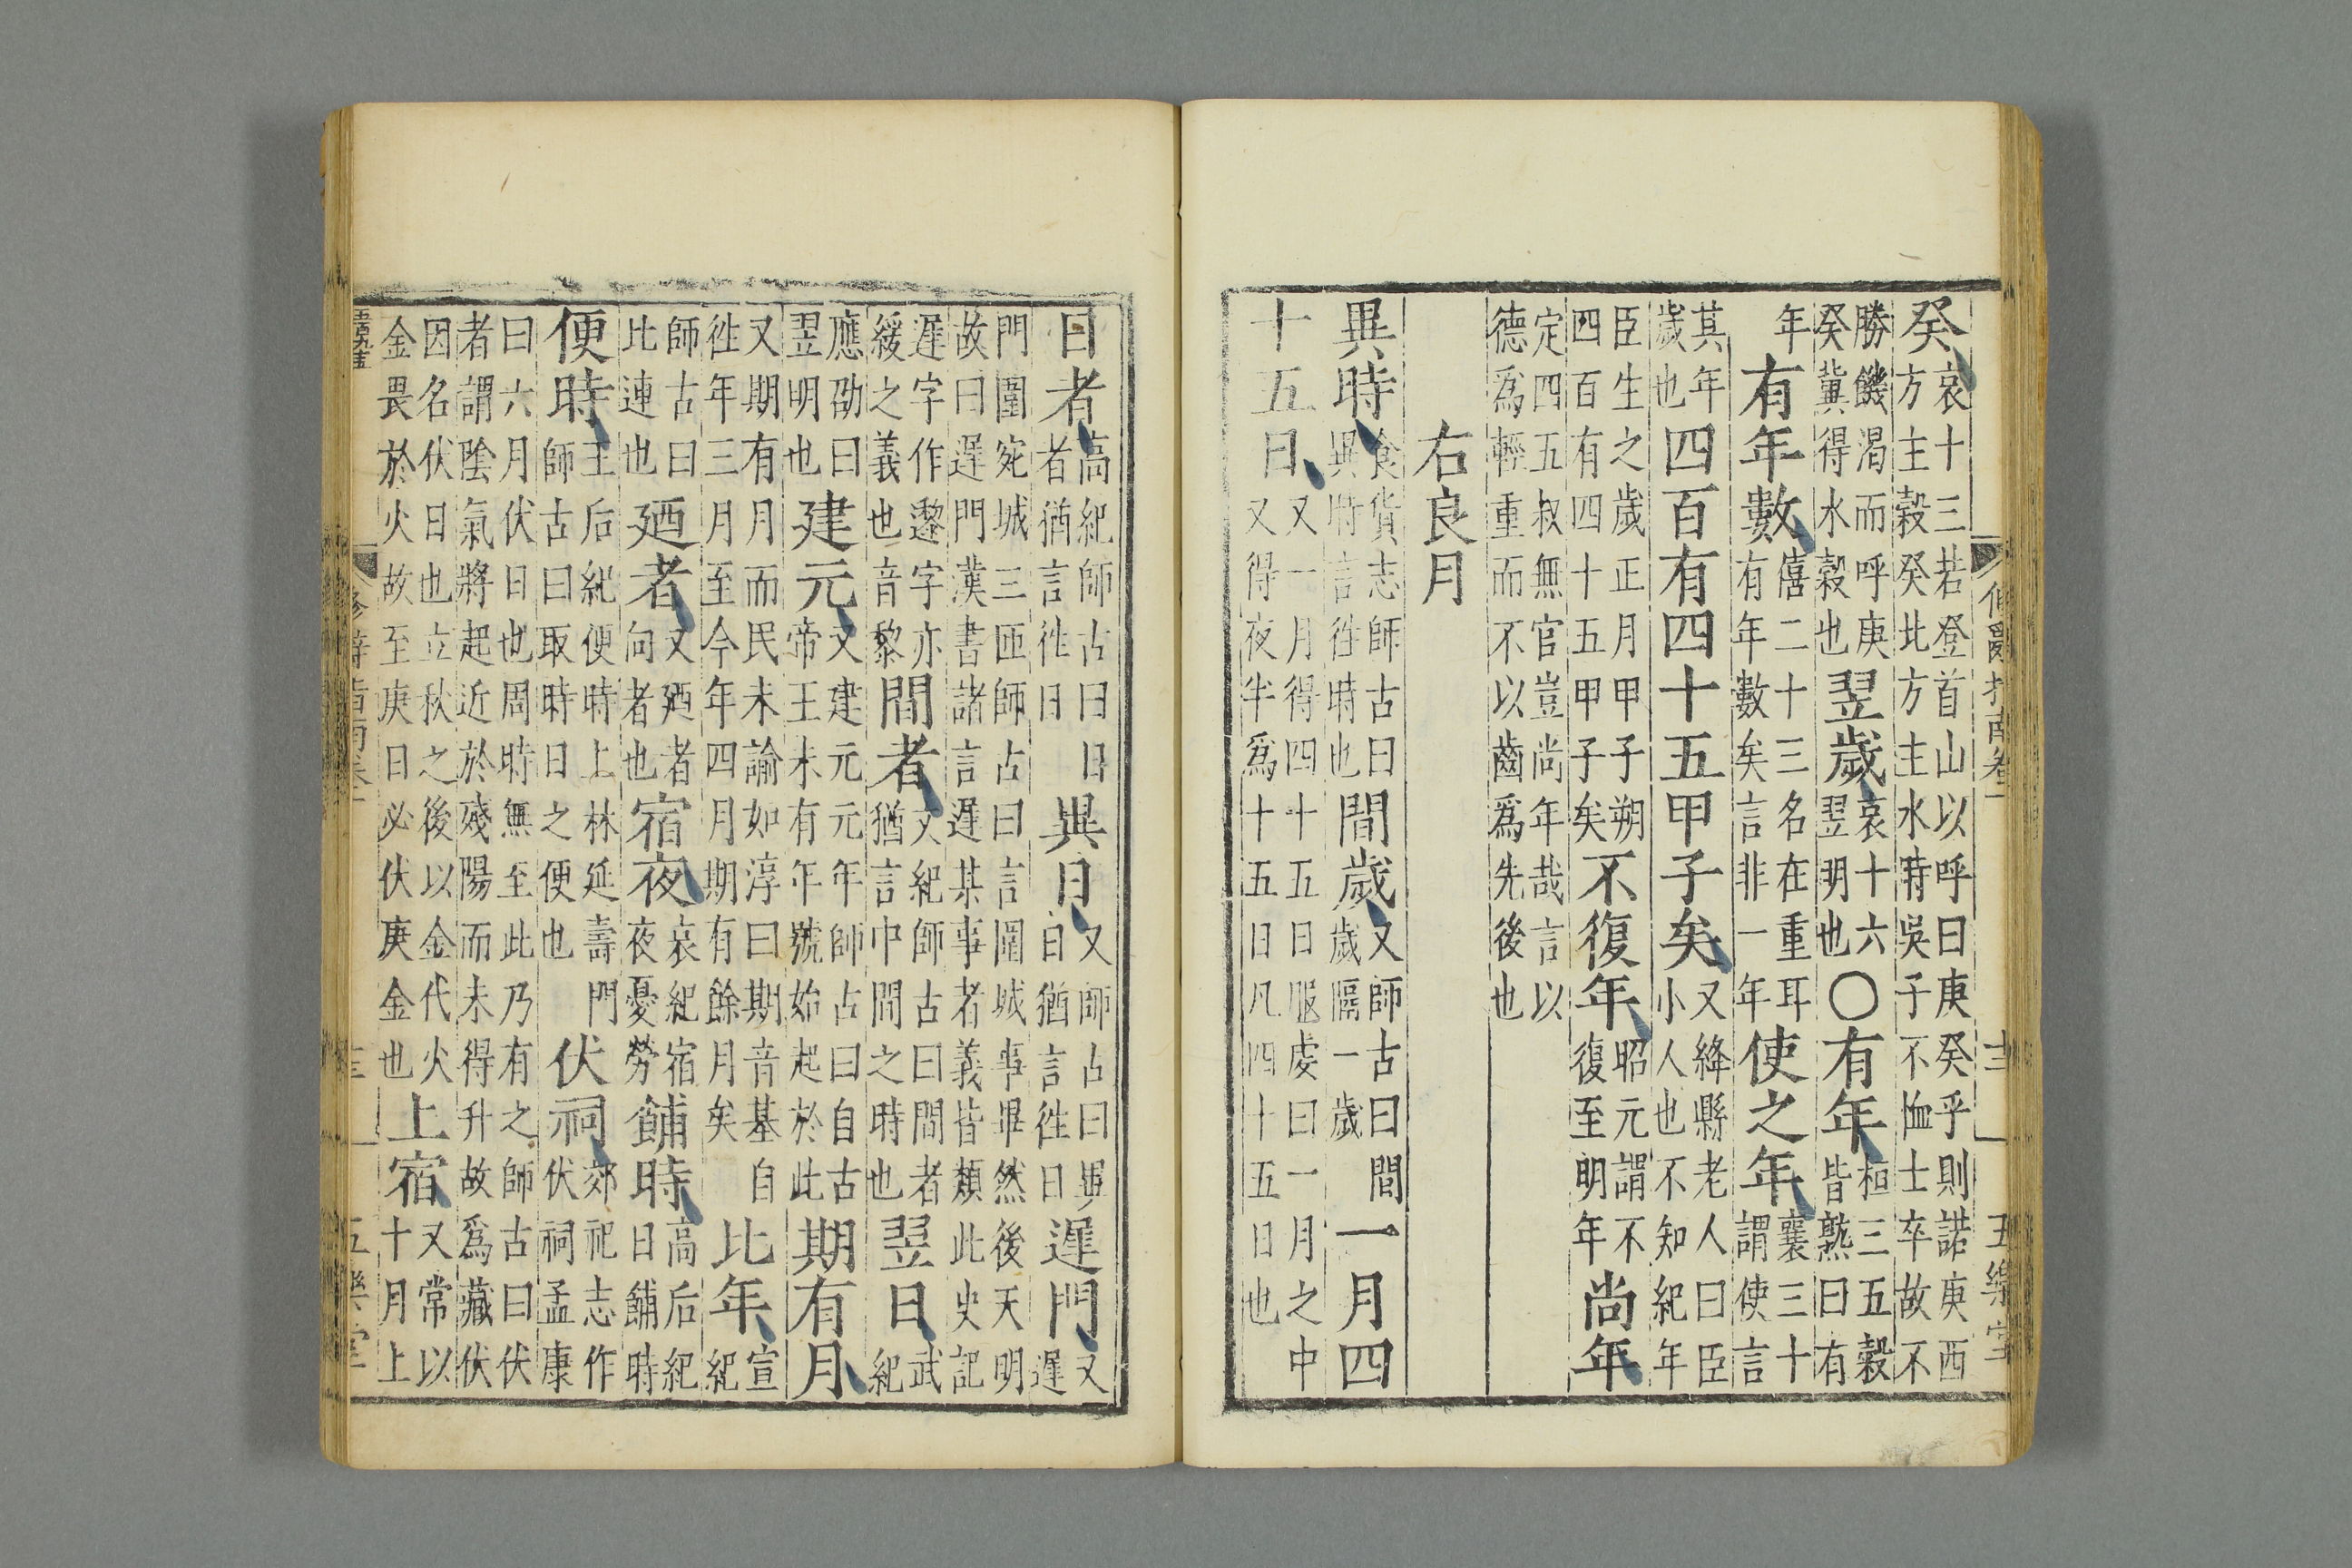 癸哀十三若登首山以呼曰庚癸乎則諾庚西方主穀癸北方主水時吳子不恤士卒故不
勝饑渴而呼庚癸冀得水穀也翌歲哀十六翌明也〇有年桓三五穀皆熟曰有
年有年數僖二十三名在重耳有年數矣言非一年使之年襄三十謂使言
其年歲也四百有四十五甲子矣又絳縣老人曰臣小人也不知紀年
臣生之歲正月甲子朔四百有四十五甲子矣不復年昭元謂不復至明年尚年
定四五叔無官豈尚年哉言以德爲輕重而不以齒爲先後也
右良月
異時食貨志師古曰異時言徃時也間歲又師古曰間歲歲隔一歲一月四
十五日又一月得四十五日服虔曰一月之中又得夜半爲十五日凡四十五日也
五樂堂
日者高紀師古曰日者猶言徃日異日又師古曰異日猶言徃日遲門又遲
門圍宛城三匝師古曰言圍城事畢然後天明故曰遲門漢書諸言遲某事者義皆類此史記
遲字作邌字亦緩之義也音黎間者文紀師古曰間者猶言中間之時也翌日武紀
應劭曰翌明也建元又建元元年師古曰自古帝王未有年號始起於此期有月
又期有月而民未諭如淳曰期音基自徃年三月至今年四月期有餘月矣比年宣紀
師古曰比連也廼者又廼者向者也宿夜哀紀宿夜夜憂勞餔時高后紀日餔時
便時王后紀便時上林延壽門師古曰取時日之便也伏祠郊祀志作伏祠孟康
曰六月伏日也周時無至此乃有之師古曰伏者謂陰氣將起近於殘陽而未得升故爲藏伏
因名伏日也立秋之後以金代火金畏於火故至庚日必伏庚金也上宿又常以十月上